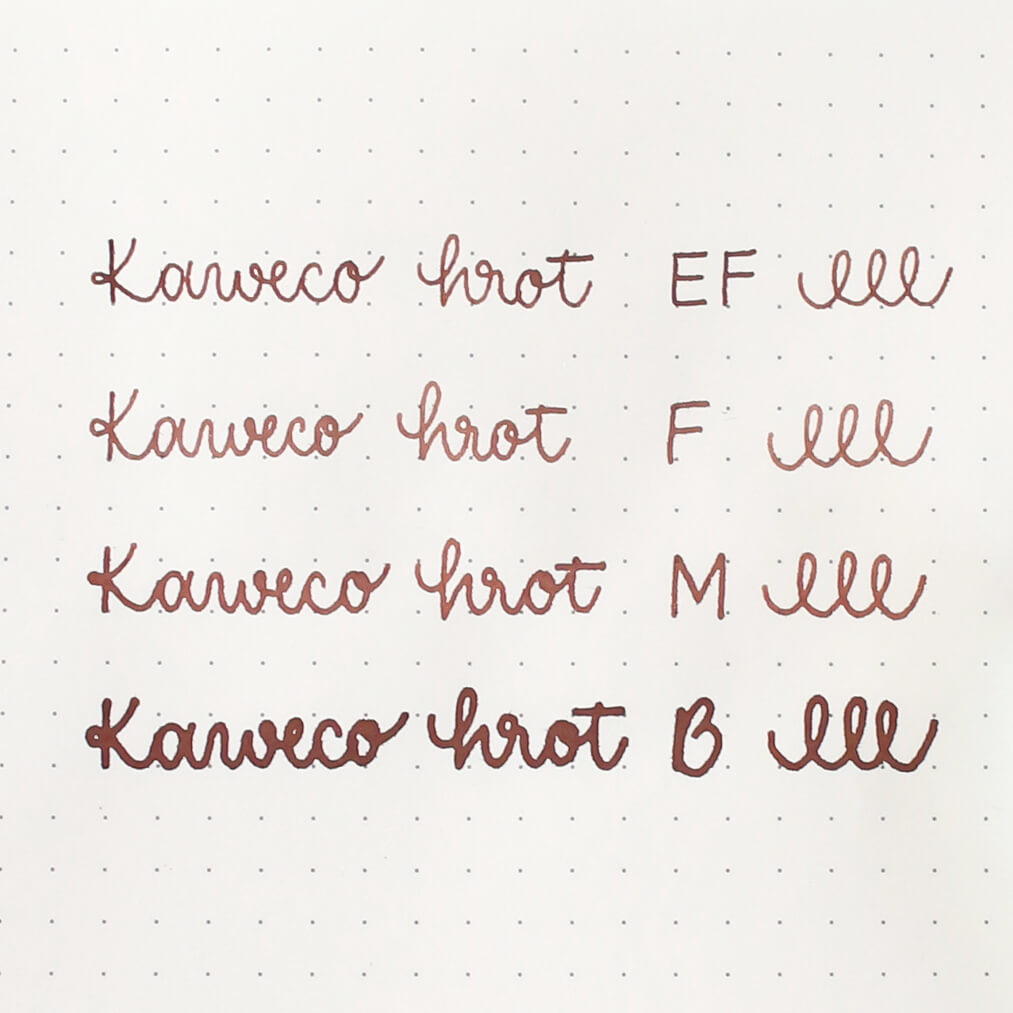 Kaweco hrot EF lll
Kaweco hrot F lll
Kaweco hrot M lll
Kaweco hrot B lll